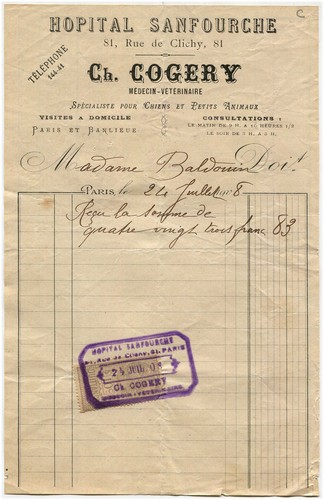 C
HOPITAL SANFOURCHE
81, Rue de Clichy, 81
TÉLÉPHONE
144-41
Ch. COGERY
MÉDECIN-VÉTÉRINAIRE
SPÉCIALISTE POUR CHIENS ET PETITS ANIMAUX
VISITES A DOMICILE
PARIS ET BANLIEUE
CONSULTATIONS :
LE MATIN DE 9 H. A 10 HEURES 1/2
LE SOIR DE
Madame Baldouin Doit
PARIS le 24 Juillet 1908
Reçu la somme de
quatre vingt trois francs 83
HOPITAL SANFOURCHE
81, Rue de Clichy, 81. PARIS
24 JUIL
Ch. COGERY
MÉDECIN-VÉTÉRINAIRE